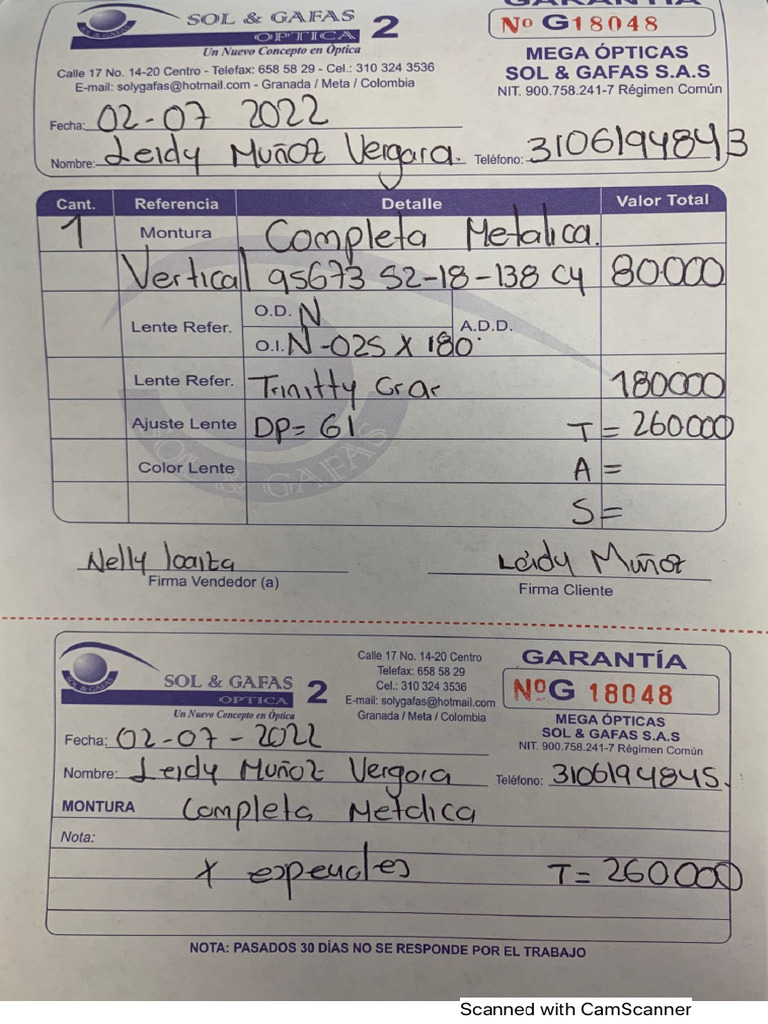 SOL & GAFAS
OPTICA 2
Un Nuevo Concepto en Óptica
Calle 17 No. 14-20 Centro - Telefax: 658 58 29 - Cel.: 310 324 3536
E-mail: solygafas@hotmail.com - Granada / Meta / Colombia
GARANTÍA
Nº G18048
MEGA ÓPTICAS
SOL & GAFAS S.A.S
NIT. 900.758.241-7 Régimen Común
Fecha: 02-07 2022
Nombre: Leidy Muñoz Vergara. Teléfono: 3106194843
Cant. Referencia Detalle Valor Total
1 Montura Completa Metalica.
Vertical 95673 52-18-138 C4 80000
O.D. N
Lente Refer. A.D.D.
O.I. N -025 X 180°
Lente Refer. Trinitty Crar 180000
Ajuste Lente DP= 61 T = 260.000
Color Lente A =
S =
SOL & GAFAS
Nelly Leidy Muñoz
Firma Vendedor (a) Firma Cliente
SOL & GAFAS
OPTICA 2
Un Nuevo Concepto en Óptica
Calle 17 No. 14-20 Centro
Telefax: 658 58 29
Cel.: 310 324 3536
E-mail: solygafas@hotmail.com
Granada / Meta / Colombia
GARANTÍA
NºG 18048
MEGA ÓPTICAS
SOL & GAFAS S.A.S
NIT. 900.758.241-7 Régimen Común
Fecha: 02-07-2022
Nombre: Leidy Muñoz Vergara Teléfono: 3106194845.
MONTURA Completa Metalica
Nota:
X espeuales T= 260000
NOTA: PASADOS 30 DÍAS NO SE RESPONDE POR EL TRABAJO
Scanned with CamScanner